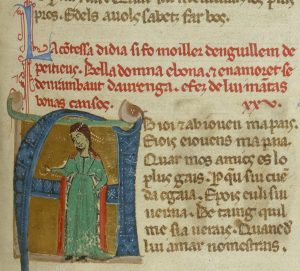 pros. Edels auols sabet: far bos.
La cōtessa didia si fo moiller denguillem de
peitieus. Bella domna e bona. et enamoret se
den raimbaut daurenga. e fez de lui matas
bonas cansos. XXV.
A Bioi et ab iouen ma pais.
Eiois e iouens ma paia.
Quar mos amics es lo
plus gais. Per qu sui cuen
da e gaia. E pois eu li sui
ueraia. Be taing quil
me sia uerais. Quanc de
lui amar nomestrais.